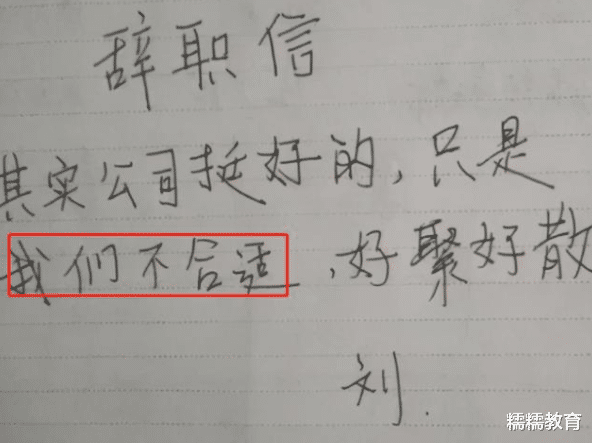 辞职信
其实公司挺好的,只是
我们不合适,好聚好散
刘.
糯糯教育